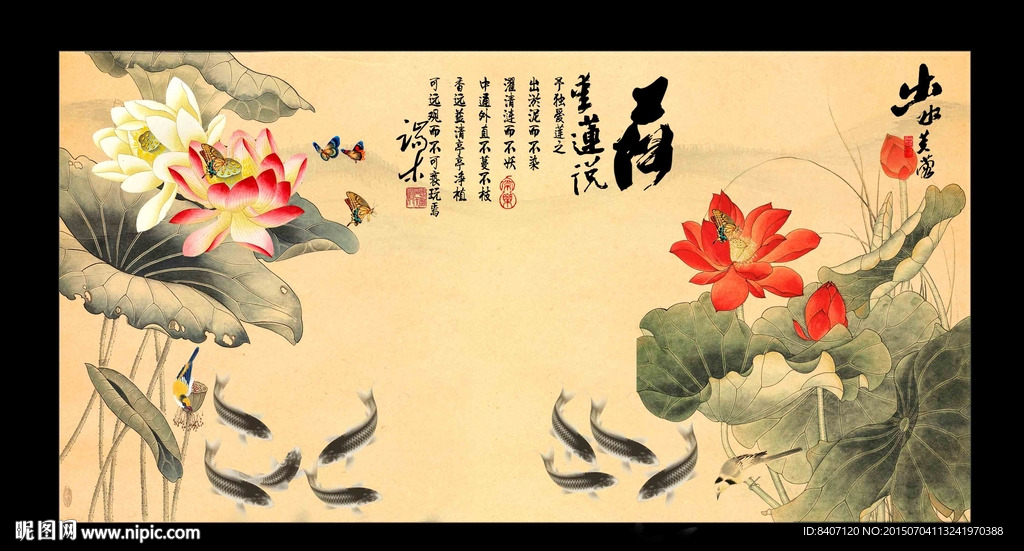 出水芙蓉
荷
爱莲说
予独爱莲之
出淤泥而不染
濯清涟而不妖
中通外直不蔓不枝
香远益清亭亭净植
可远观而不可亵玩焉
昵图网 www.nipic.com
ID:8407120 NO:20150704113241970388